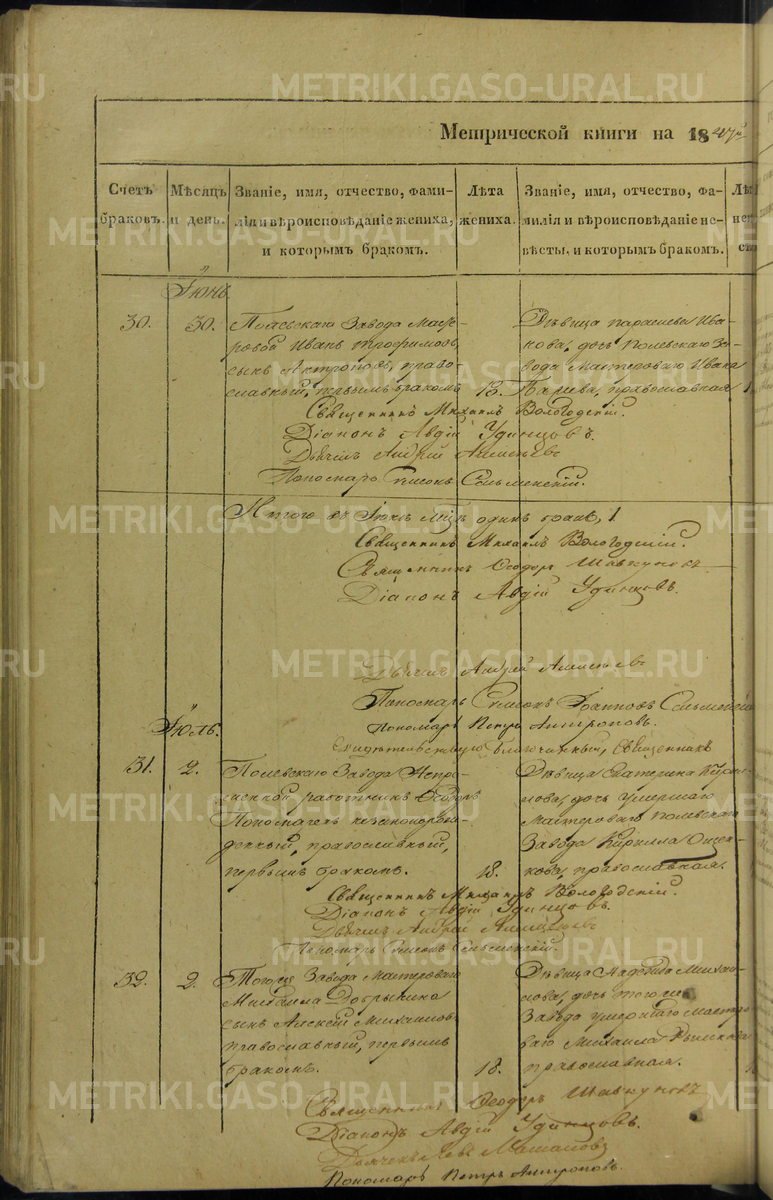 METRIKI.GASO-URAL.RU
Метрической книги на 1847й
Счетъ браковъ.
Мѣсяцъ и день.
Званіе, имя, отчество, фамилія и вѣроисповѣданіе жениха, и которымъ бракомъ.
Лѣта жениха.
Званіе, имя, отчество, фамилія и вѣроисповѣданіе невѣсты, и которымъ бракомъ.
Іюнь
30.
30.
Завода Масте-
ровой Иванъ Трофимовъ,
сынъ Антроповъ, право-
славный, первымъ бракомъ
18.
Дѣвица Ива-
нова, дочь Полевскаго За-
вода Мастероваго Ивана
православная
Священникъ Михаилъ Вологодскій.
Діаконъ Авдій Удинцовъ.
Дьячекъ Андрей
Пономарь Симеонъ
Итого въ Іюнѣ мцѣ одинъ бракъ, 1
Священникъ Михаилъ Вологодскій.
Священникъ Ѳеодоръ Шавкуновъ
Діаконъ Авдій Удинцовъ.
Дьячекъ Андрей
Пономарь Симеонъ
Пономарь Петръ Антроповъ.
благочинный, Священникъ
Іюль.
31.
2.
Полевскаго Завода
работникъ Ѳеодоръ
незаконорож-
денный, православный,
первымъ бракомъ.
18.
Дѣвица Екатерина Кирил-
лова, дочь умершаго
Мастероваго Полевскаго
Завода Кирилла
православная.
Священникъ Михаилъ Вологодскій.
Діаконъ Авдій Удинцовъ.
Дьячекъ Андрей
Пономарь Симеонъ
32.
2.
Тогоже Завода Мастероваго
Михаила Добрынина
сынъ Алексѣй Михаиловъ
православный, первымъ
бракомъ.
18.
Дѣвица Надежда Михаи-
лова, дочь тогоже
Завода умершаго Мастеро-
ваго Михаила
православная.
Священникъ Ѳеодоръ Шавкуновъ
Діаконъ Авдій Удинцовъ.
Дьячекъ
Пономарь Петръ Антроповъ.